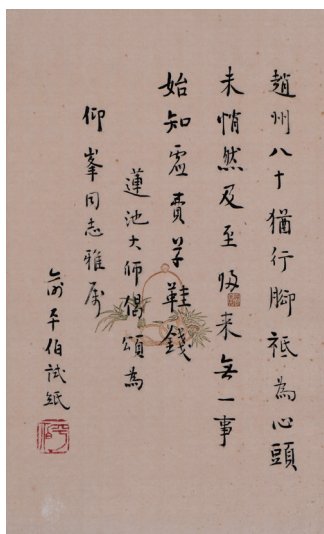 趙州八十猶行腳祇為心頭
未悄然及至歸来无一事
始知虛費草鞋錢
蓮池大師偈頌為
仰峯同志雅属
俞平伯試紙